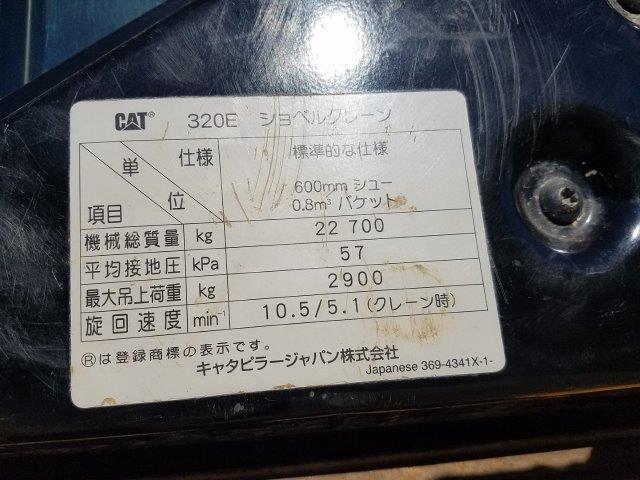 CAT® 320E ショベルクレーン
単位 仕様 標準的な仕様
項目 600mm シュー
0.8m³ バケット
機械総質量 kg 22 700
平均接地圧 kPa 57
最大吊上荷重 kg 2900
旋回速度 min⁻¹ 10.5/5.1(クレーン時)
®は登録商標の表示です。
キャタピラージャパン株式会社
Japanese 369-4341X-1-